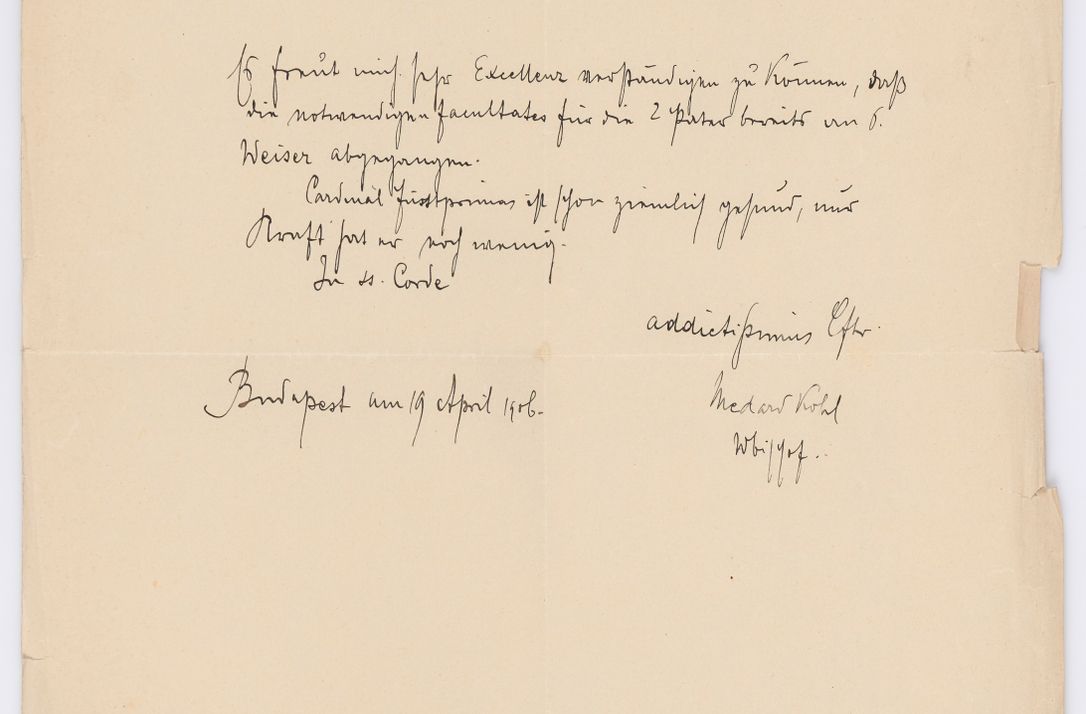 Es freut mich sehr Excellenz verständigen zu können, daß
die notwendigen facultates für die 2 Pater bereits an
Weiser abgegangen.
Cardinal Fürstprimas ist schon ziemlich gesund, nur
Kraft hat er noch wenig.
In ss. Corde
addictissimus
Budapest am 19 April 1906.
Medard Kohl
Wbischof.